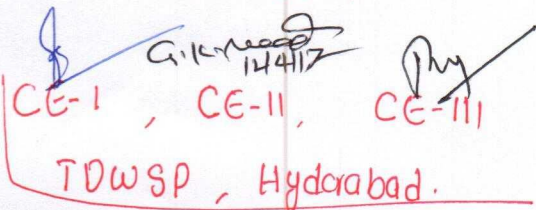 14/4/17
CE-I, CE-II, CE-III
TDWSP, Hyderabad.